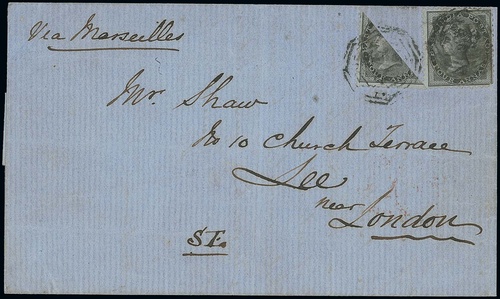 Via Marseilles
Mr. Shaw
No 10 Church Terrace
Lee
near
London
S.E.